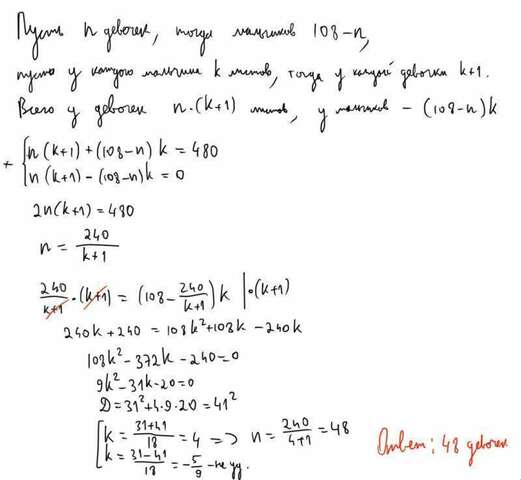 Пусть n девочек, тогда мальчиков 108-n,
пусть у каждого мальчика k листов, тогда у каждой девочки k+1.
Всего у девочек n·(k+1) листов, у мальчиков - (108-n)k
+ { n(k+1)+(108-n)k = 480
n(k+1)-(108-n)k = 0
2n(k+1) = 480
n = 240/(k+1)
240/(k+1)·(k+1) = (108-240/(k+1))k |·(k+1)
240k+240 = 108k²+108k-240k
108k²-372k-240=0
9k²-31k-20=0
D=31²+4·9·20=41²
[ k = (31+41)/18 = 4 => n = 240/(4+1) = 48
k = (31-41)/18 = -5/9 - не уд.
Ответ: 48 девочек